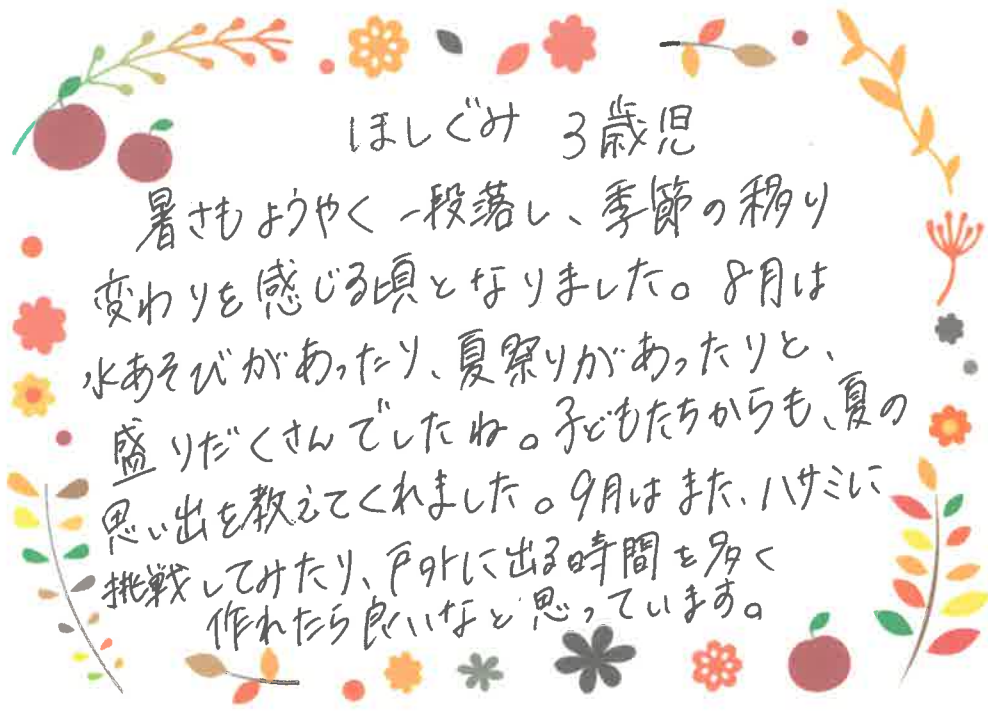 ほしぐみ 3歳児
暑さもようやく一段落し、季節の移り
変わりを感じる頃となりました。8月は
水あそびがあったり、夏祭りがあったりと、
盛りだくさんでしたね。子どもたちからも、夏の
思い出を教えてくれました。9月はまた、ハサミに
挑戦してみたり、戸外に出る時間を多く
作れたら良いなと思っています。